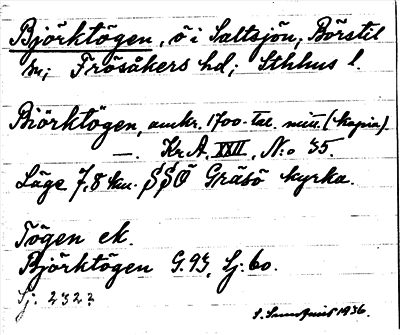 Björktögen, ö i Saltsjön; Börstil
sn; Frösåkers hd; Sthhus l.
Biörktögen, omkr. 1700-tal. mitt. (kopia).
—. Kr. A. XXII, N:o 35.
Läge 7,8 km. SSÖ Gräsö kyrka.
Tögen ek.
Björktögen G. 93, Sj: 60.
Sj: 232?
1936.